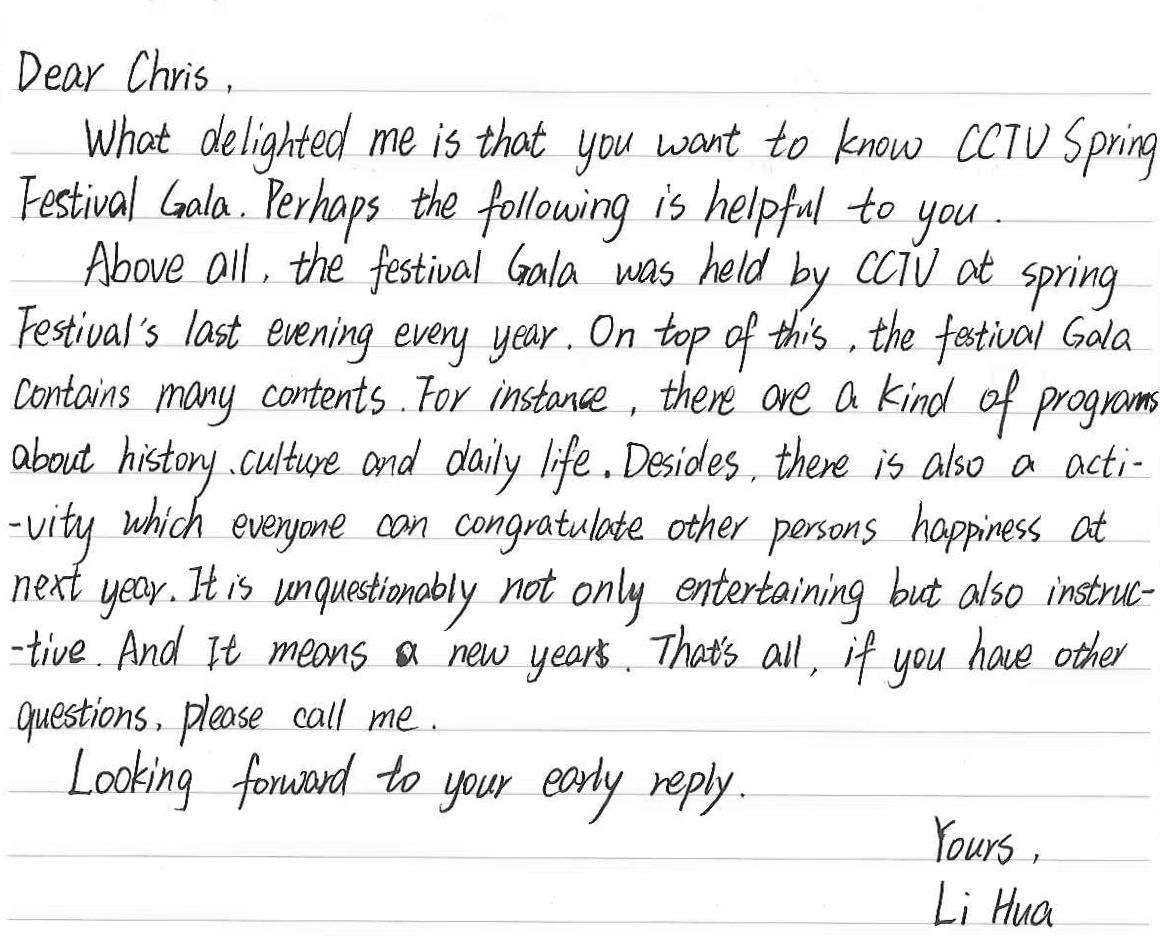 Dear Chris,
What delighted me is that you want to know CCTV Spring
Festival Gala. Perhaps the following is helpful to you.
Above all, the festival Gala was held by CCTV at spring
Festival's last evening every year. On top of this, the festival Gala
contains many contents. For instance, there are a kind of programs
about history, culture and daily life. Desides, there is also a acti-
-vity which everyone can congratulate other persons happiness at
next year. It is unquestionably not only entertaining but also instruc-
-tive. And It means a new years. That's all, if you have other
questions, please call me.
Looking forward to your early reply.
Yours,
Li Hua